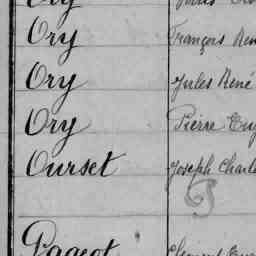 Ory
Ory François René
Ory Jules René
Ory Pierre Eug
Ourset Joseph Charles
Pageot